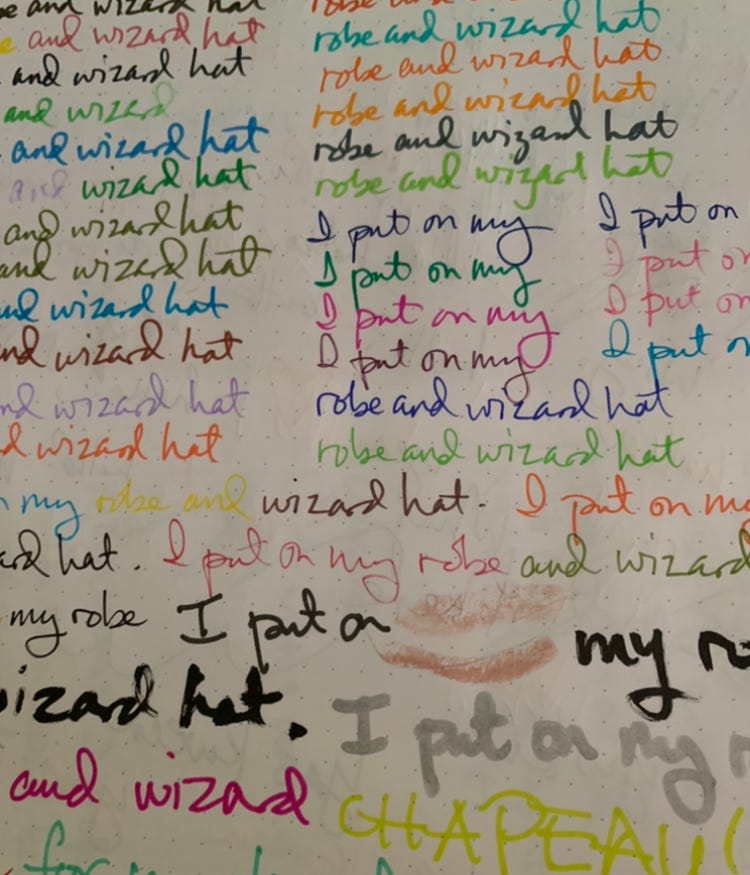 and wizard hat
robe and
and wizard hat
and wizard hat
and wizard
and wizard hat
and wizard hat
and wizard hat
and wizard hat
wizard hat
wizard hat
wizard hat
wizard hat
robe and wizard hat
robe and wizard hat
robe and wizard hat
robe and wizard hat
robe and wizard hat
I put on my I put on
I put on my I put on
I put on my I put on
I put on my I put on
robe and wizard hat
robe and wizard hat
my robe and wizard hat. I put on my
hat. I put on my robe and wizard
my robe I put on my
wizard hat. I put on my
and wizard CHAPEAU